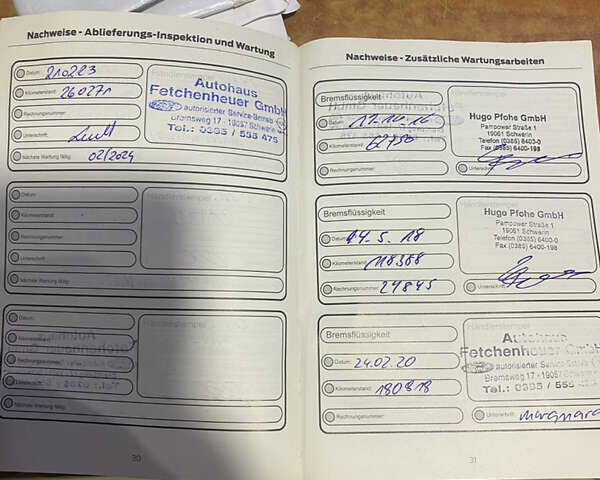 Nachweise - Ablieferungs-Inspektion und Wartung
Datum: 210223
Kilometerstand: 260271
Rechnungsnummer:
Unterschrift:
Nächste Wartung fällig: 02/2024
Händlerstempel
Autohaus
Fetchenheuer GmbH
autorisierter Service-Betrieb
Bremsweg 17 - 19057 Schwerin
Tel.: 0385 / 555 475
Datum:
Kilometerstand:
Rechnungsnummer:
Unterschrift:
Nächste Wartung fällig:
Händlerstempel
Datum:
Kilometerstand:
Rechnungsnummer:
Unterschrift:
Nächste Wartung fällig:
Händlerstempel
30
Nachweise - Zusätzliche Wartungsarbeiten
Bremsflüssigkeit
Datum:
Kilometerstand: 62750
Rechnungsnummer:
Hugo Pfohe GmbH
Pampower Straße 1
19061 Schwerin
Telefon (0385) 6400-0
Fax (0385) 6400-198
Unterschrift:
Bremsflüssigkeit
Datum: 14.5.18
Kilometerstand: 118388
Rechnungsnummer: 24845
Hugo Pfohe GmbH
Pampower Straße 1
19061 Schwerin
Telefon (0385) 6400-0
Fax (0385) 6400-198
Unterschrift:
Bremsflüssigkeit
Datum: 24.02.20
Kilometerstand: 180818
Rechnungsnummer:
Händlerstempel
Autohaus
Fetchenheuer GmbH
autorisierter Service-Betrieb
Bremsweg 17 - 19057
Tel.: 0385 / 555 475
Unterschrift:
31